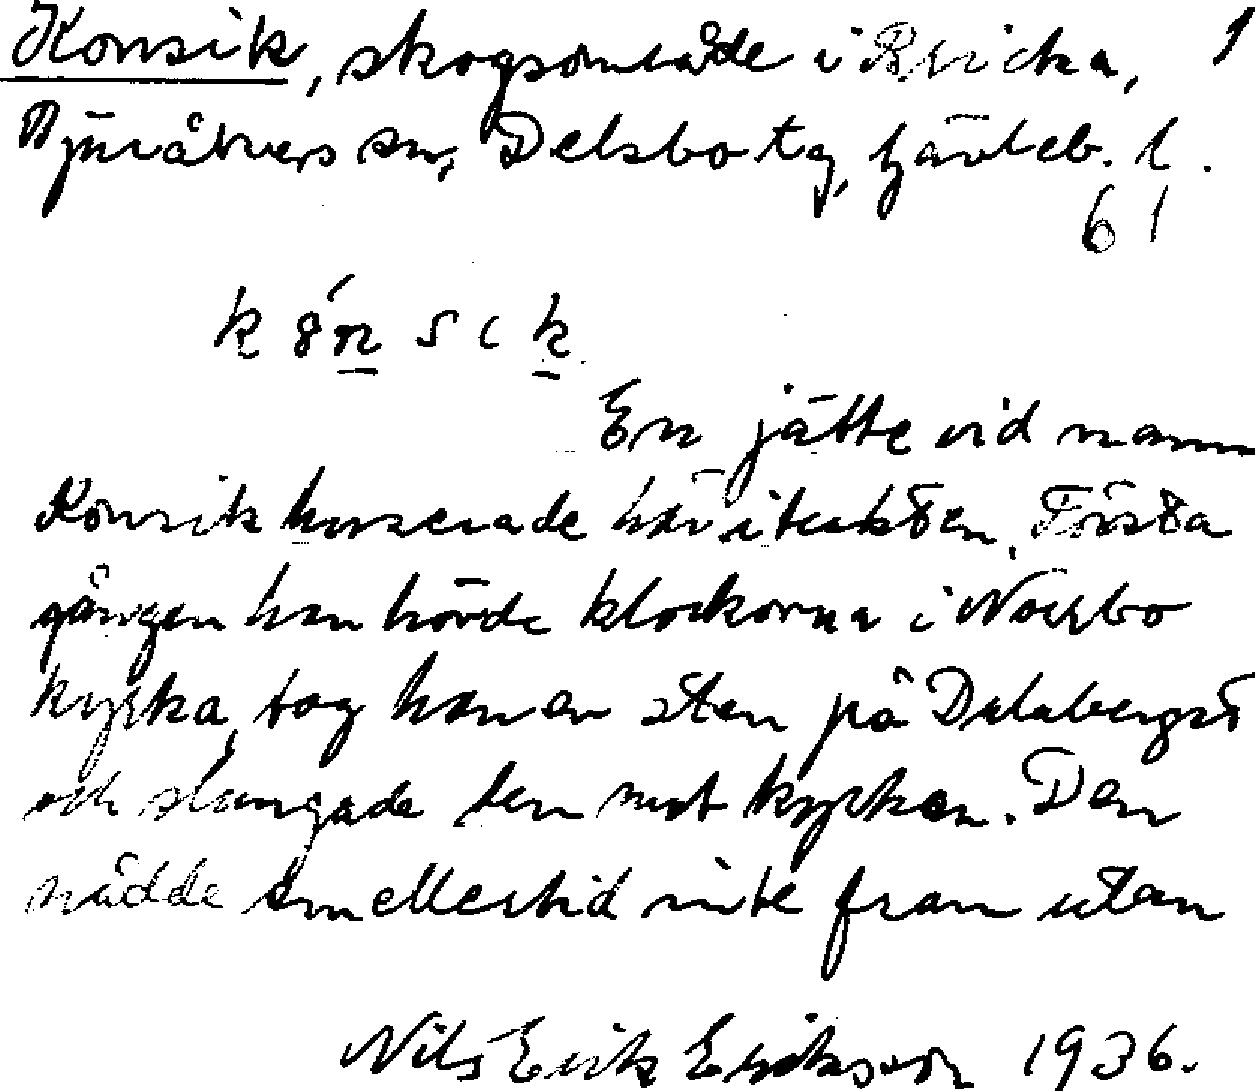 Konsik, skogsområde i Bricka, 1
Bjuråkers sn, Delsbo tg, Gävleb. l.
61
En jätte vid namn
Konsik huserade här i trakten. Första
gången han hörde klockorna i Norrbo
kyrka, tog han en sten på
och slängade den mot kyrkan. Den
nådde emellertid inte fram utan
Nils Erik Eriksson 1936.